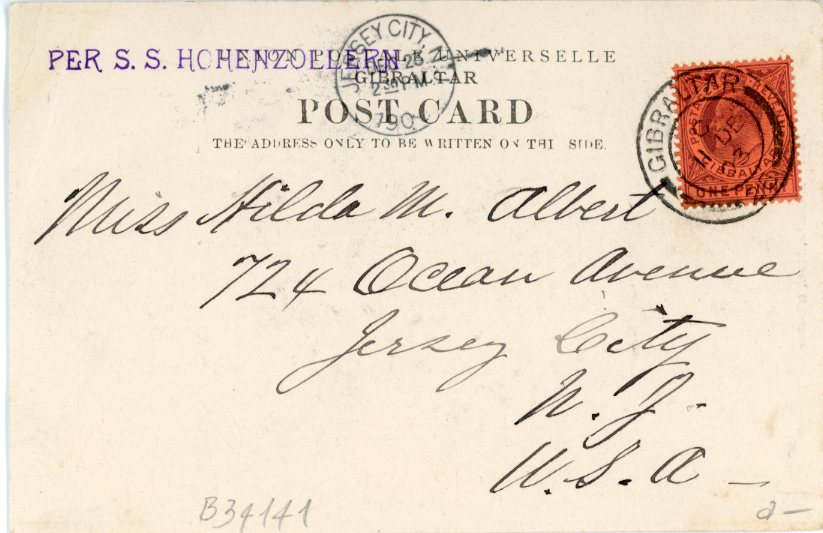 PER S. S. HOHENZOLLERN
UNION POSTALE UNIVERSELLE
GIBRALTAR
POST CARD
THE ADDRESS ONLY TO BE WRITTEN ON THE SIDE.
JERSEY CITY, N.J.
23
2 30 P.M.
190
GIBRALTAR
DE
03
POSTAGE & REVENUE
GIBRALTAR
ONE PENNY
Miss Hilda M. Albert
724 Ocean Avenue
Jersey City
N. J.
U. S. A —
B34141
a —